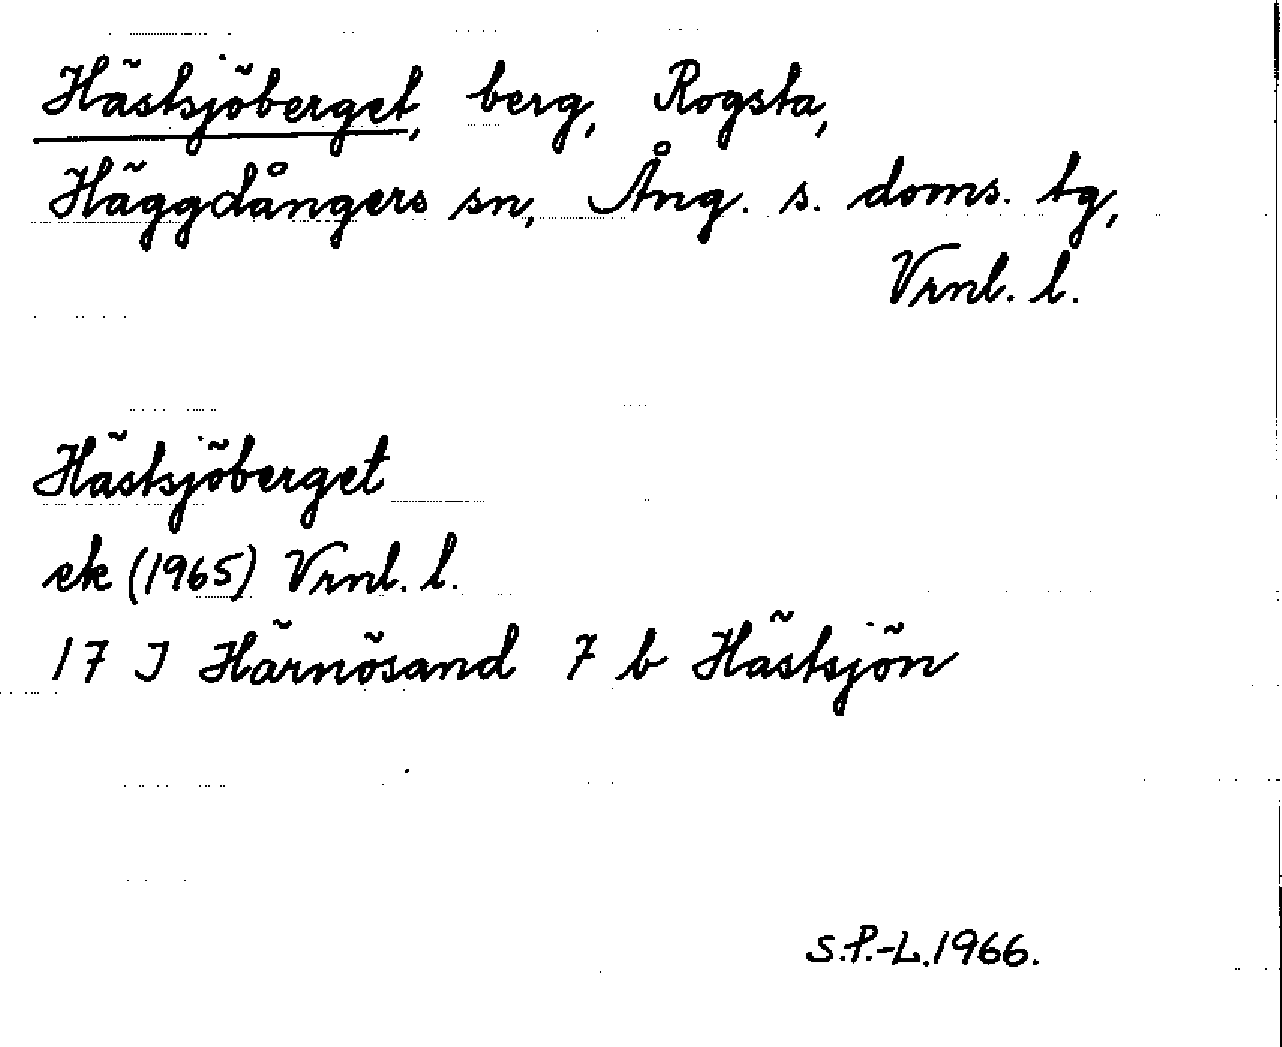 Hästsjöberget, berg, Rogsta,
Häggdångers sn, Ång. s. doms. tg,
Vrnl. l.
Hästsjöberget
ek (1965) Vrnl. l.
17 J Härnösand 7 b Hästsjön
S.P.-L.1966.